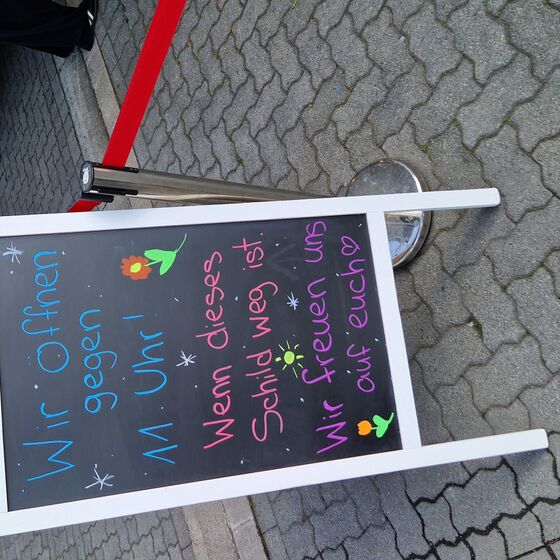 Wir Öffnen
gegen
11 Uhr!
Wenn dieses
Schild weg ist.
Wir freuen uns
auf euch♡